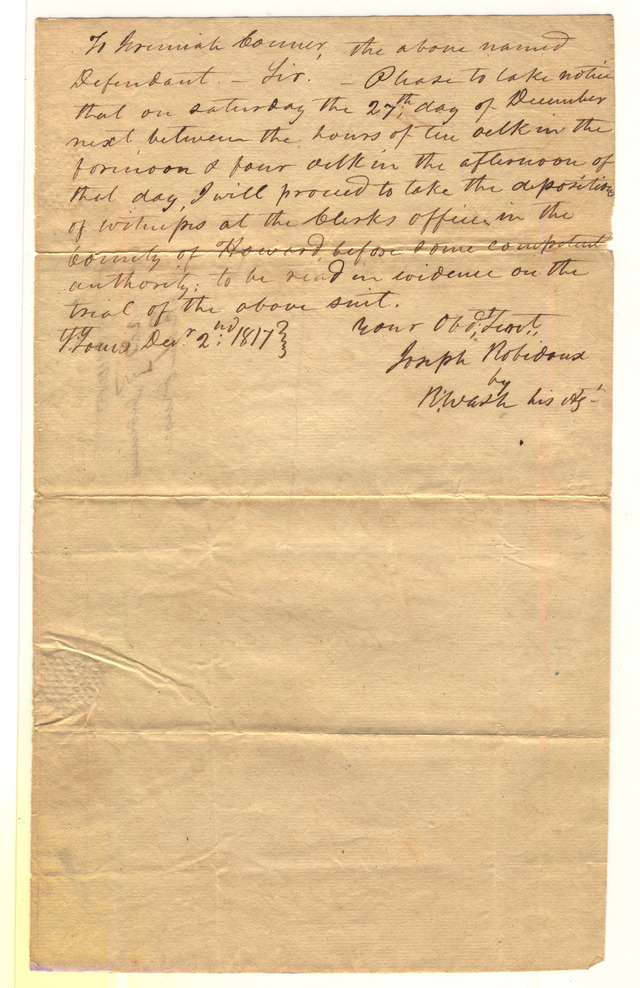 To Jeremiah Conner, the above named
Defendant. – Sir. – Please to take notice
that on saturday the 27th day of December
next between the hours of ten oclk in the
forinoon & four oclk in the afternoon of
that day, I will proceed to take the depositions
of witnesses at the Clerks office in the
County of Howard before some competent
authority; to be read in evidence on the
trial of the above suit.
St Louis Decr. 2nd 1817
Your Obdt. Servt.,
Joseph Robidoux
by
R. Wash his Aty